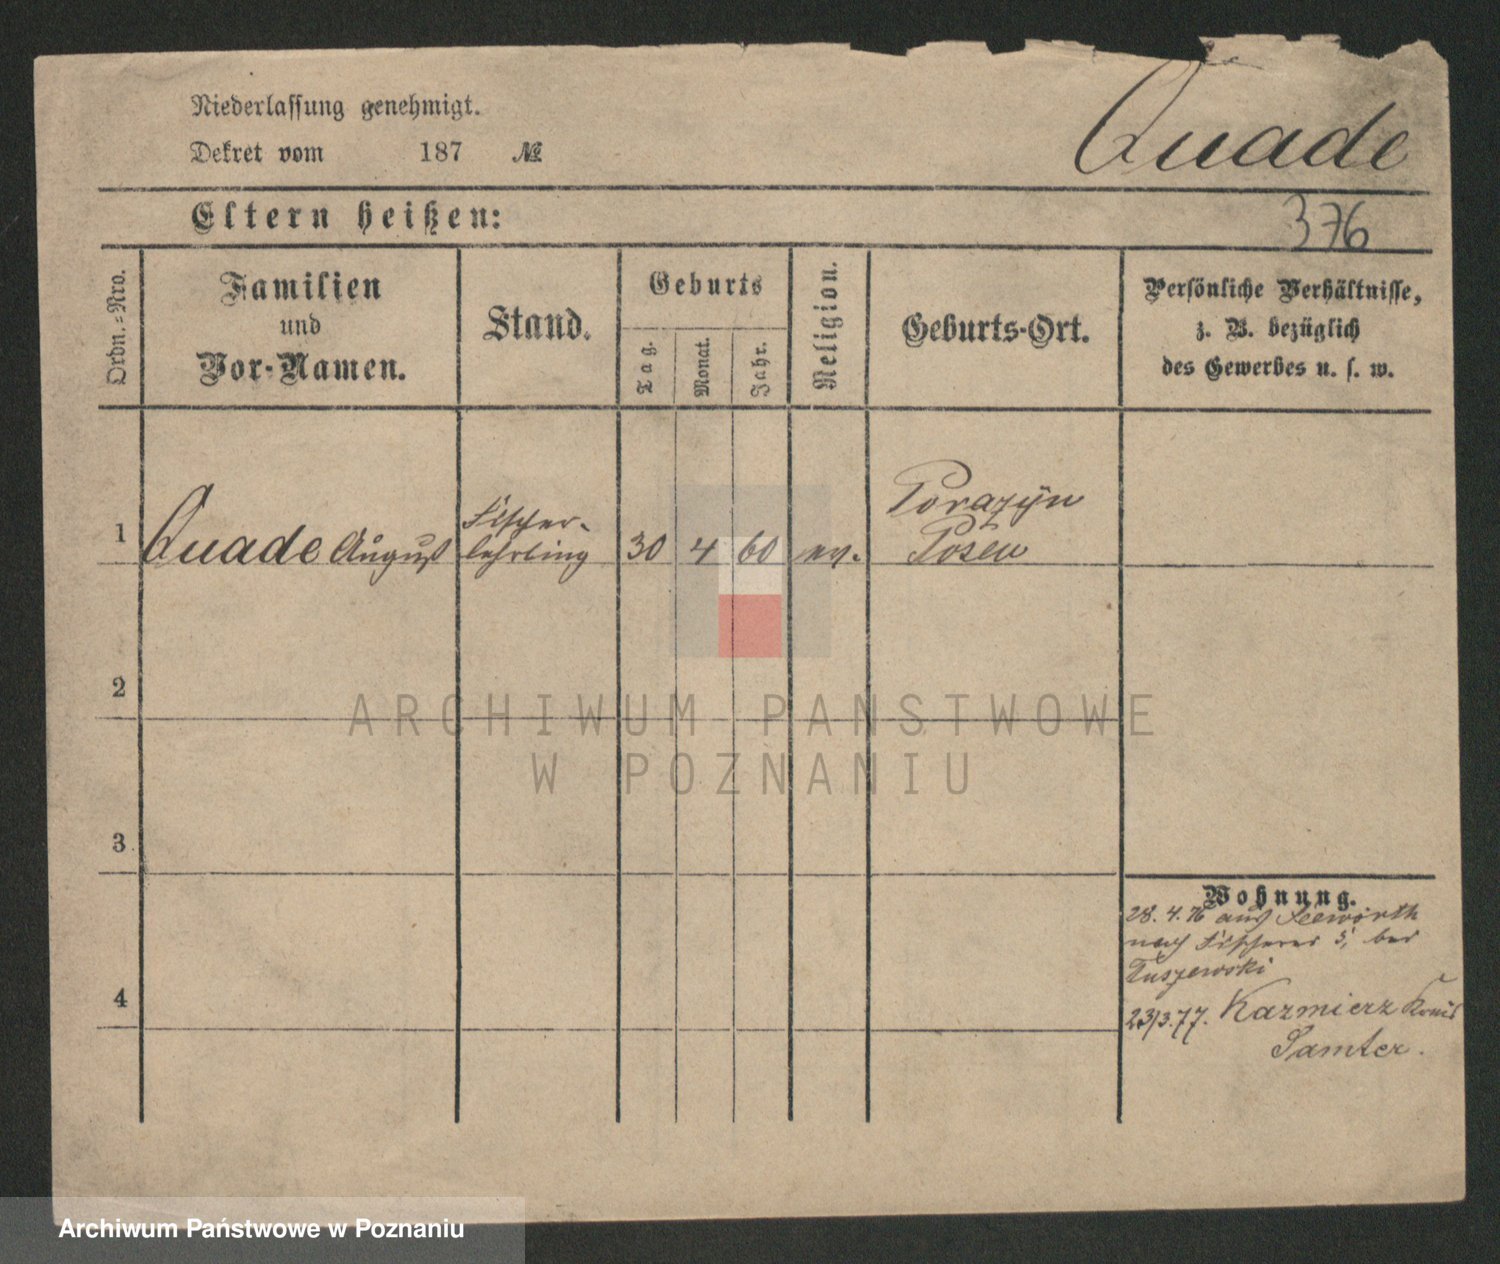 Niederlassung genehmigt.
Dekret vom 187 №
Quade
Eltern heißen:
376
Ordn.-Nro.
Familien
und
Vor-Namen.
Stand.
Geburts
Tag.
Monat.
Jahr.
Religion.
Geburts-Ort.
Persönliche Verhältnisse,
z. B. bezüglich
des Gewerbes u. s. w.
1 Quade August
Fischer-
lehrling
30 4 60 ev.
Porazyn
Posen
2
ARCHIWUM PAŃSTWOWE
W POZNANIU
3
Wohnung.
28. 4. 76 aus
nach Fischerei 5, bei
Tuszewski
4
23/3. 77. Kazmierz Kreis
Samter.
Archiwum Państwowe w Poznaniu